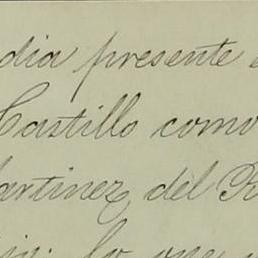 dia presente
Castillo como
artinez del R
lo que